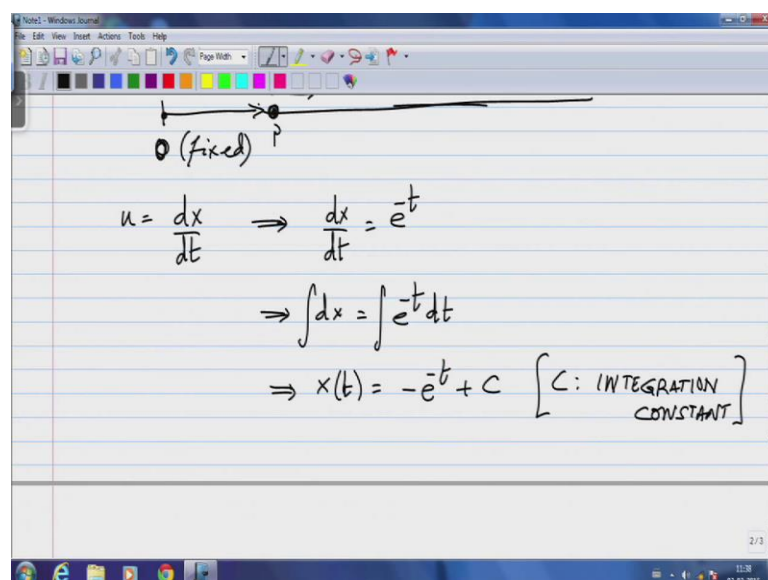 Note1 - Windows Journal
File Edit View Insert Actions Tools Help
Page Width
O (fixed) P
u = dx/dt ⇒ dx/dt = e^-t
⇒ ∫dx = ∫e^-t dt
⇒ x(t) = -e^-t + C [C: INTEGRATION
CONSTANT]
2/3
11:38